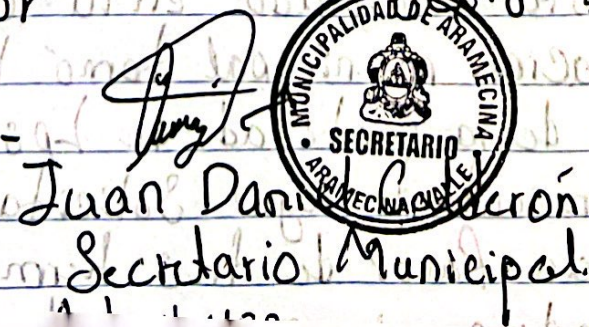 MUNICIPALIDAD DE ARAMECINA
SECRETARIO
ARAMECINA VALLE
Juan Daniel Calderón
Secretario Municipal